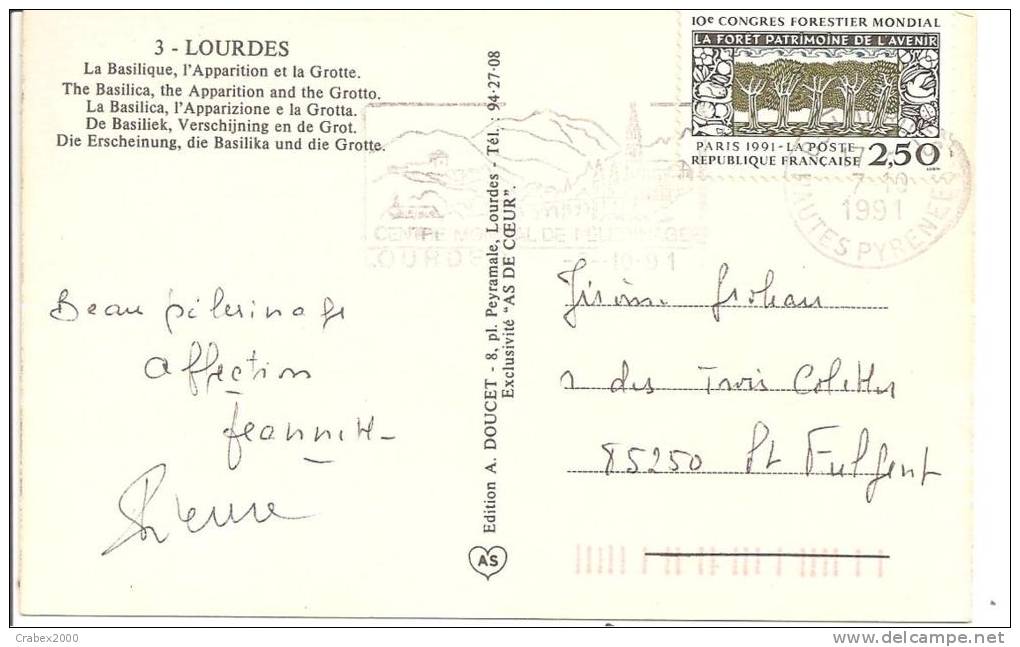 3 - LOURDES
La Basilique, l'Apparition et la Grotte.
The Basilica, the Apparition and the Grotto.
La Basilica, l'Apparizione e la Grotta.
De Basiliek, Verschijning en de Grot.
Die Erscheinung, die Basilika und die Grotte.
10e CONGRES FORESTIER MONDIAL
LA FORÊT PATRIMOINE DE L'AVENIR
PARIS 1991 - LA POSTE
REPUBLIQUE FRANÇAISE 2,50
1991
HAUTES PYRENEES
CENTRE MONDIAL DE PELERINAGES
LOURDES
10-91
Edition A. DOUCET - 8, pl. Peyramale, Lourdes - Tél. : 94-27-08
Exclusivité "AS DE CŒUR".
AS
Beau pélerinage
affection
Jeannette
Pierre
Jérôme
des Trois
85250 St Fulgent
Crabex2000
www.delcampe.net